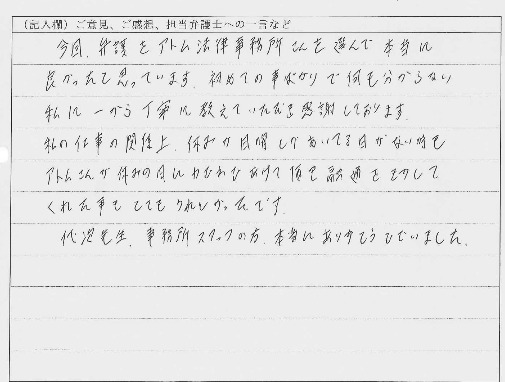 (記入欄)ご意見、ご感想、担当弁護士への一言など
今回、弁護をアトム法律事務所さんを選んで本当に
良かったと思っています。初めての事ばかりで何も分からない
私に一から丁寧に教えていただき感謝しております。
私の仕事の関係上、休みが日曜しかあいてる日がない時も
アトムさんが休みの日にわざわざあけて頂き融通をきかして
くれた事もとてもうれしかったです。
先生、事務所スタッフの方、本当にありがとうございました。